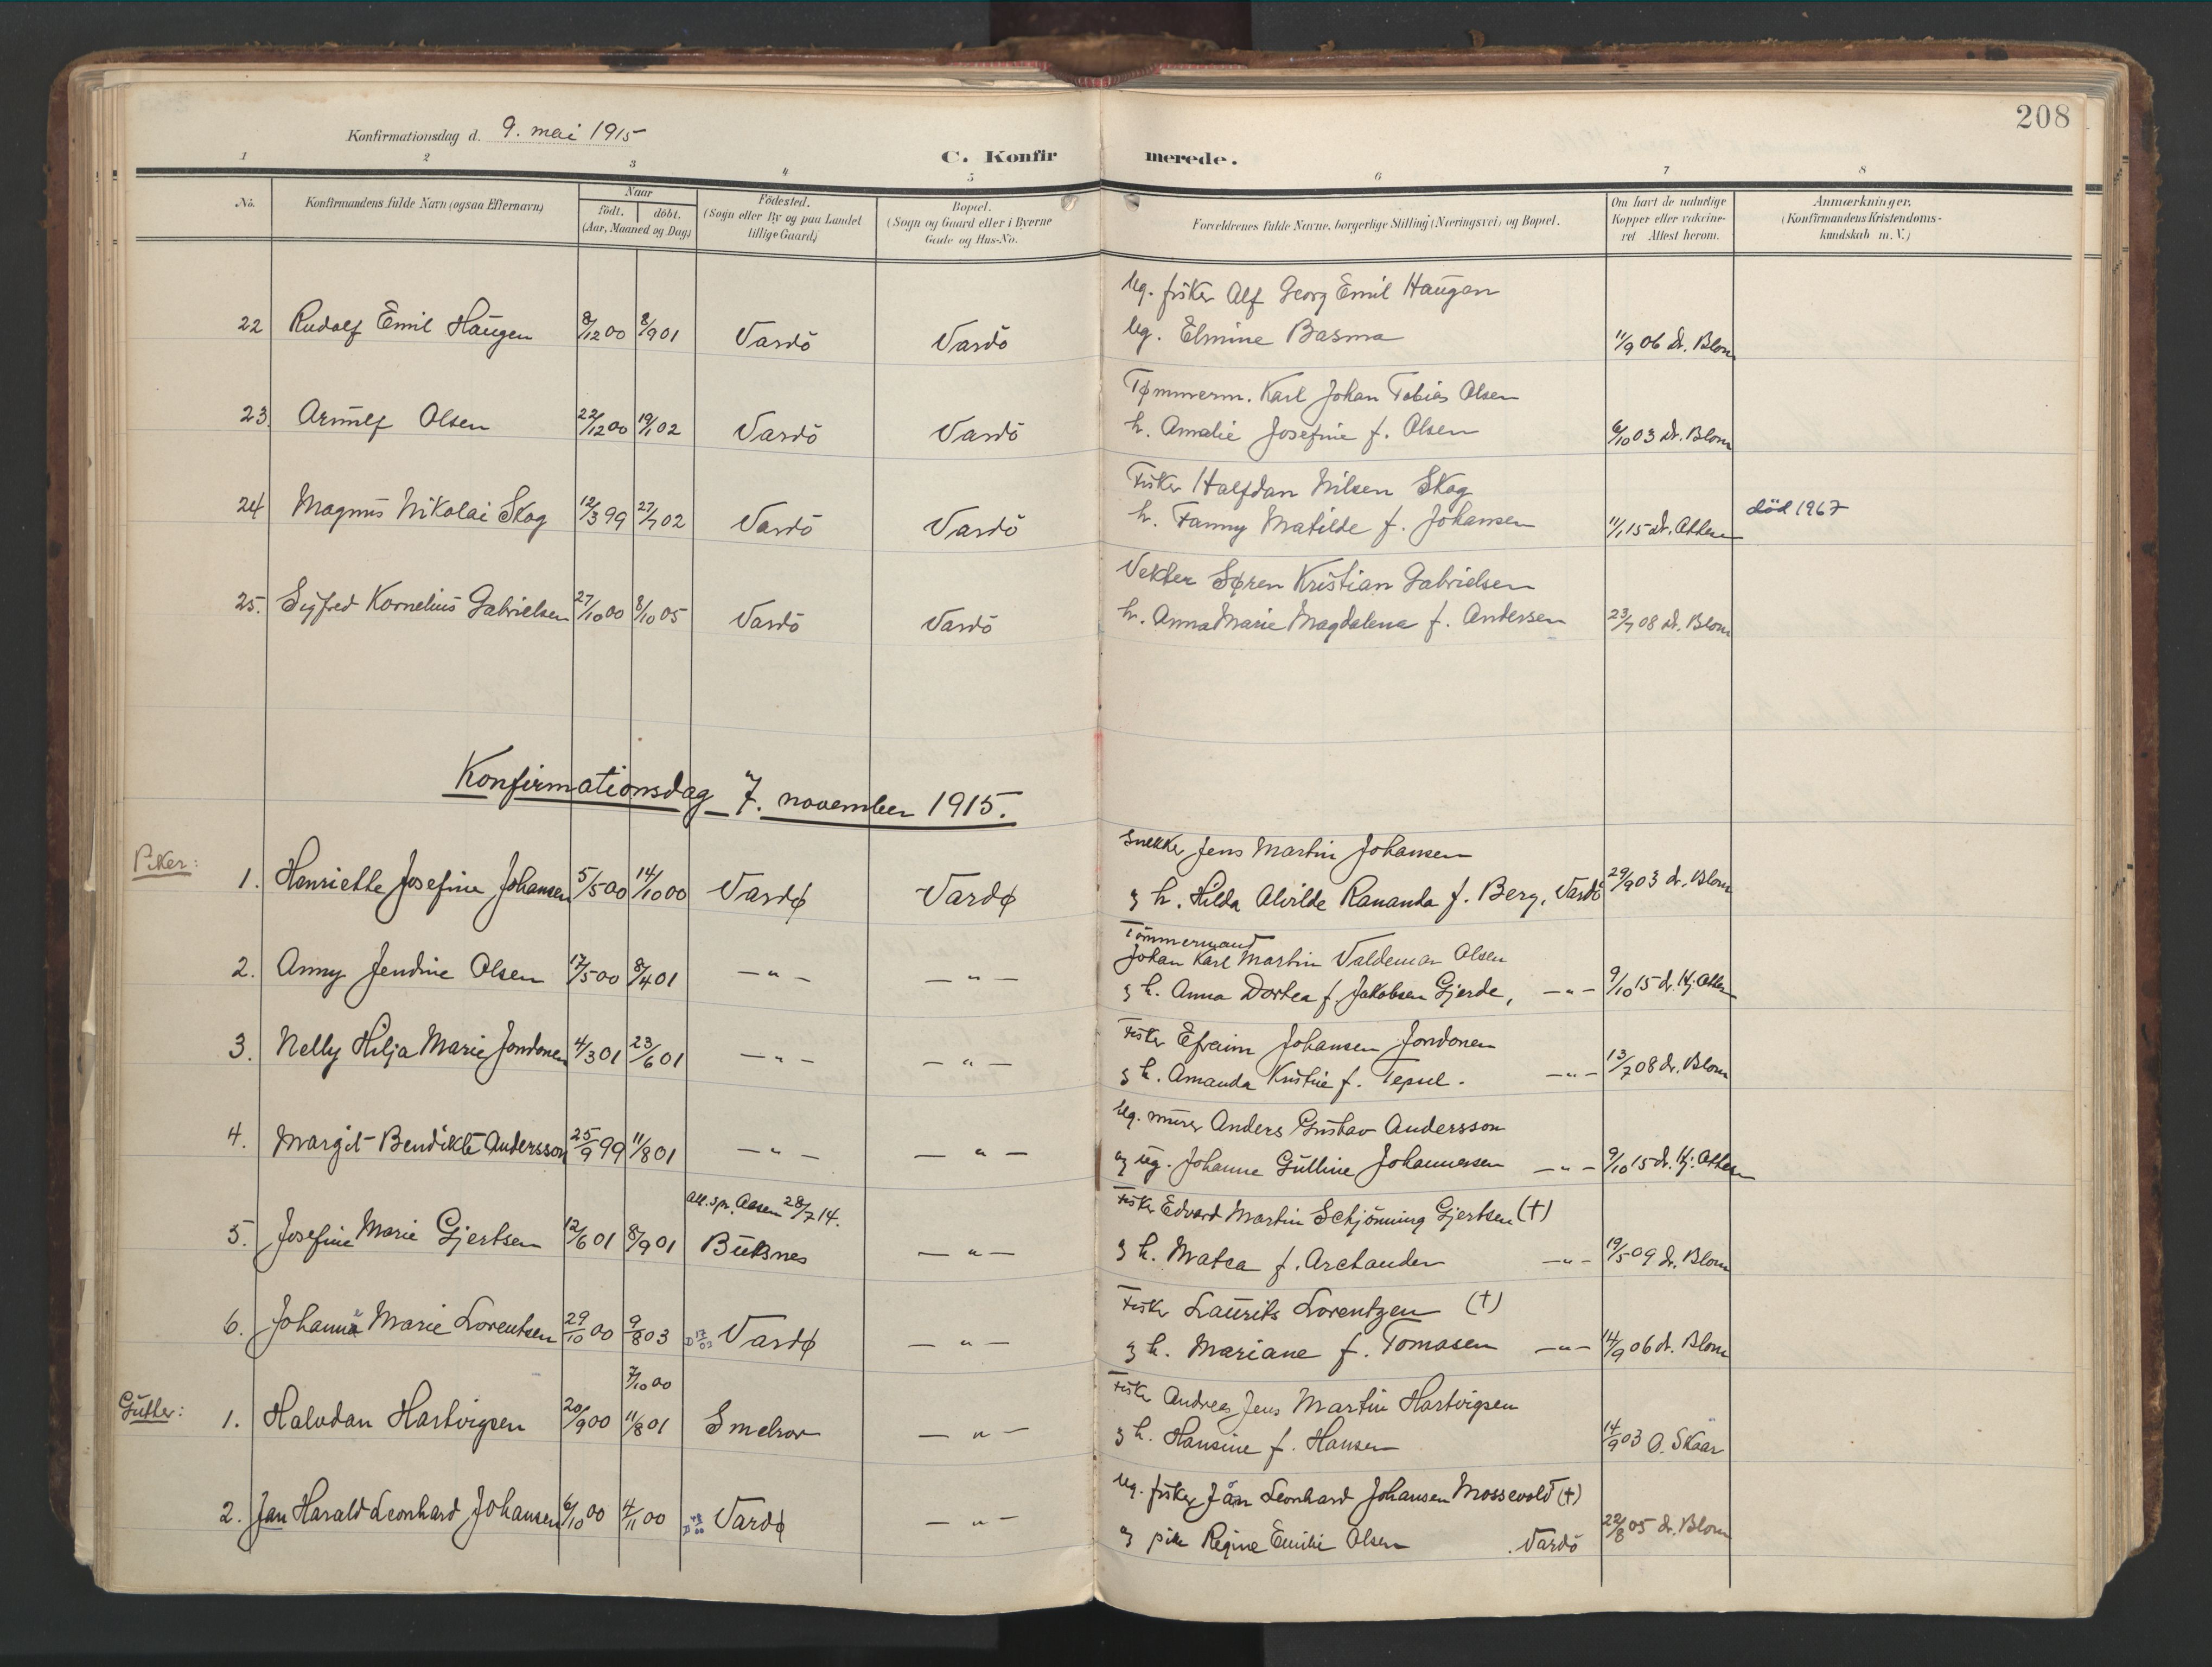 208
Konfirmationsdag d. 9. mai 1915
C. Konfirmerede.
1 2 3 4 5 6 7 8
No. Konfirmandens fulde Navn (ogsaa Efternavn) Naar født. døbt. (Aar, Maaned og Dag) Fødested. (Sogn eller By og paa Landet tillige Gaard) Bopæl. (Sogn og Gaard eller i Byerne Gade og Hus-No. Forældrenes fulde Navne, borgerlige Stilling (Næringsvei) og Bopæl. Om havt de naturlige Kopper eller vakcineret Attest herom. Anmærkninger. (Konfirmandens Kristendomskundskab m. V.)
Ug. fisker Alf Georg Emil Haugen
22 Rudolf Emil Haugen 8/12 00 8/9 01 Vardö Vardö Ug. Elmine Basma 11/9 06 Dr. Blom
Tømmerm. Karl Johan Tobias Olsen
23. Arnulf Olsen 22/12 00 19/1 02 Vardö Vardö h. Amalie Josefine f. Olsen 6/10 03 Dr. Blom
Fisker Halfdan Nilsen Skog
24 Magnus Nikolai Skog 12/3 99 27/7 02 Vardö Vardö h. Fanny Matilde f. Johansen 11/1 15 dr. Ottesen död 1967
Vekter Søren Kristian Gabrielsen
25. Sigfred Kornelius Gabrielsen 27/10 00 8/10 05 Vardö Vardö h. Anna Marie Magdalena f. Andersen 23/7 08 dr. Blom
Konfirmationsdag 7. november 1915.
Piker:
Snekker Jens Martin Johansen
1. Henriette Josefine Johansen 5/5 00 14/10 00 Vardø Vardø g h. Hilda Alvilde Rananda f. Berg, Vardö 29/9 03 dr. Blom
Tömmermand
Johan Karl Martin Valdemar Olsen
2. Anny Jendine Olsen 17/5 00 8/4 01 — " — — " — g h. Anna Dortea f. Jakobsen Gjerde, — " — 9/10 15 d. Kj. Otten
Fisker Efraim Johansen Jondonen
3. Nelly Hilja Marie Jondonen 4/3 01 23/6 01 — " — — " — g h. Amanda Kristine f. — " — 13/7 08 dr. Blom
Ug. murer Anders Gustav Andersson
4. Margit Bendikte Andersson 25/9 99 11/8 01 — " — — " — og ug. Johanne Gulline Johannessen — " — 9/10 15 d. Kj. Otten
att. spr. Aasen 28/7 14.
Fisker Edvard Martin Schjönning Gjertsen (+)
5. Josefine Marie Gjertsen 12/6 01 8/9 01 Buksnes — " — g h. Matea f. Archander — " — 19/5 09 dr. Blom
Fisker Laurits Lorentzen (+)
6. Johanna Marie Lorentsen 29/10 00 9/8 03 Vardø — " — g h. Mariane f. Tomasen — " — 14/9 06 d. Blom
7/10 00
Fisker Andreas Jens Martin Hartvigsen
Gutter:
1. Halvdan Hartvigsen 20/9 00 11/8 01 Smelror — " — g h. Hansine f. Hansen 14/9 03 O. Skaar
Ug. fisker Jan Leonhard Johansen Mossevold (+)
2. Jan Harald Leonhard Johansen 6/10 00 4/11 00 Vardø — " — g pike Regine Emilie Olsen Vardö 22/8 05 dr. Blom